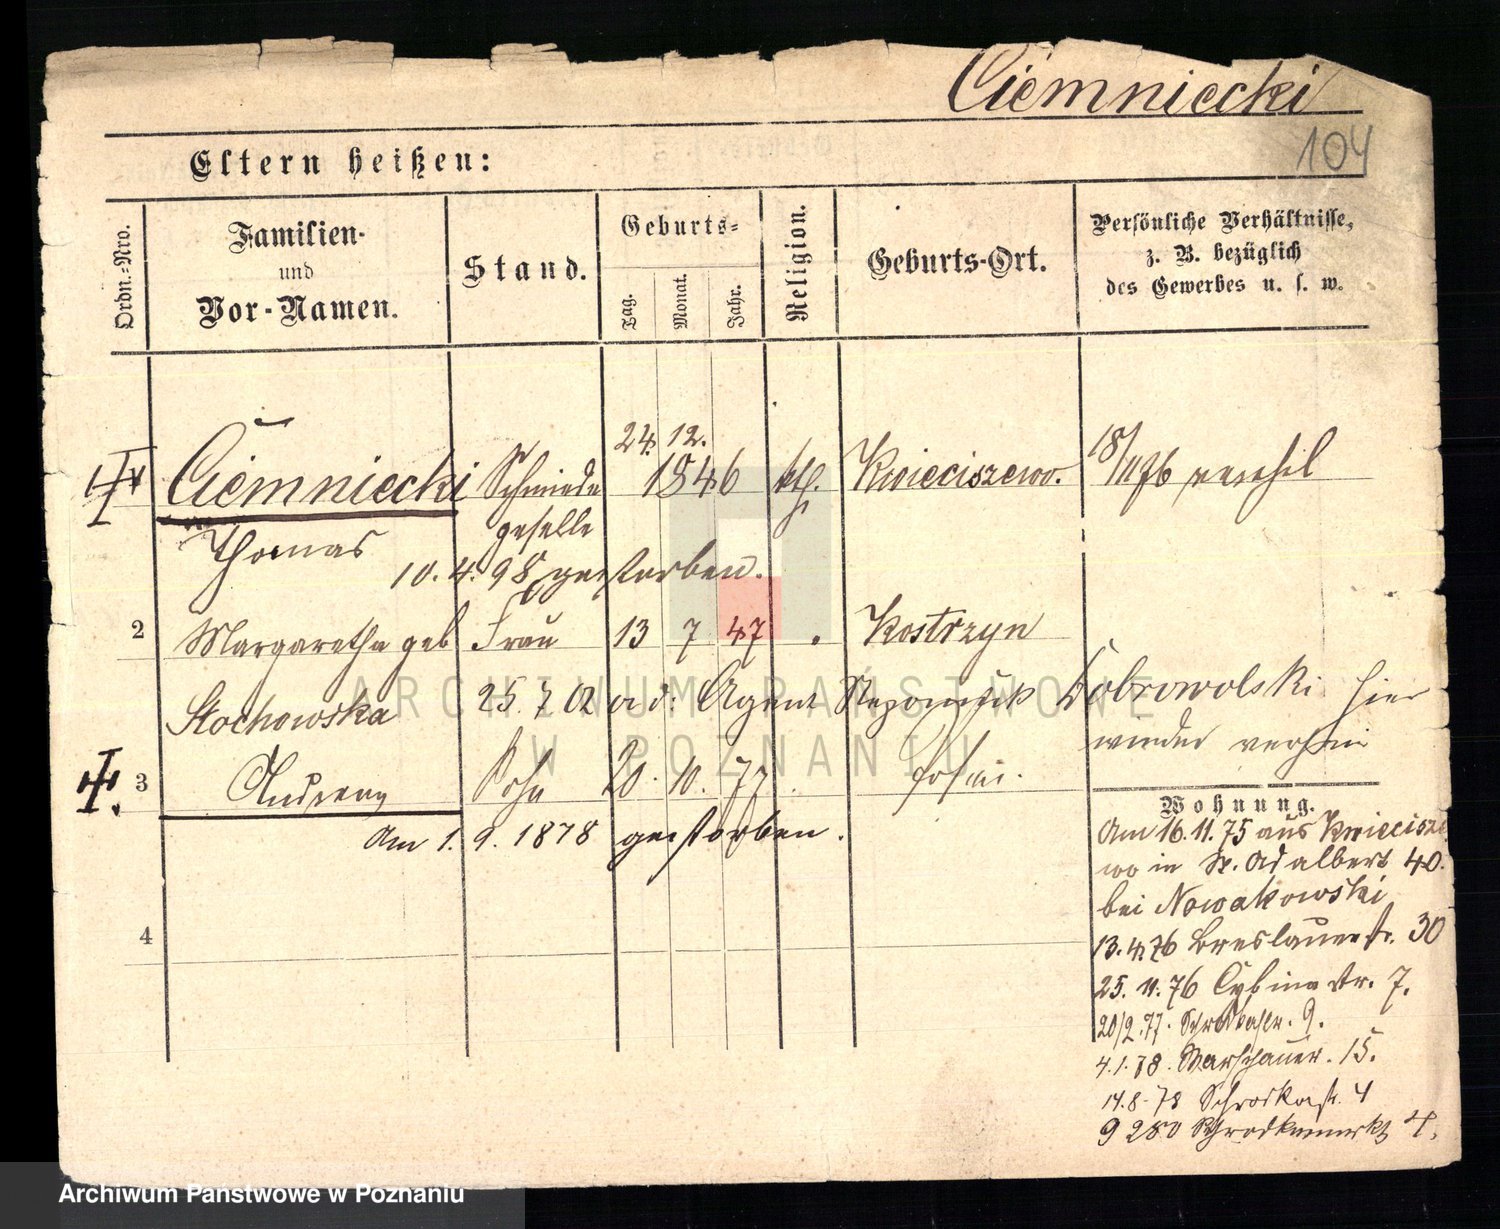 Ciemniecki
104
Eltern heißen:
Ordn.-Nro.
Familien-
und
Vor-Namen.
Stand.
Geburts-
Tag.
Monat.
Jahr.
Religion.
Geburts-Ort.
Persönliche Verhältnisse,
z. B. bezüglich
des Gewerbes u. s. w.
24. 12.
Ciemniecki Schmiede 1846 kth. Kwieciszewo. 18/11 76 verehel
geselle
Thomas
10. 4. 98 gestorben.
2 Margaretha geb Frau 13 7 47 Kostrzyn
Stochowska 25. 7 02 ad: Agent Nepomuk Dobrowolski hier
wieder
3 Andreas Sohn 20. 10. 77 Posen.
Am 1. 9. 1878 gestorben.
4
Wohnung.
Am 16. 11. 75 aus Kwiecisze
wo in St. Adalbert 40.
bei Nowakowski
13. 4. 76 Breslauerstr. 30
25. 11. 76 Cybinastr. 7.
20/2. 77. 9.
4. 1. 78. Warschauer. 15.
14. 8. 78 Schrodkastr. 4
9 2 80 Schrodkamarkt 4.
ARCHIWUM PAŃSTWOWE
W POZNANIU
Archiwum Państwowe w Poznaniu